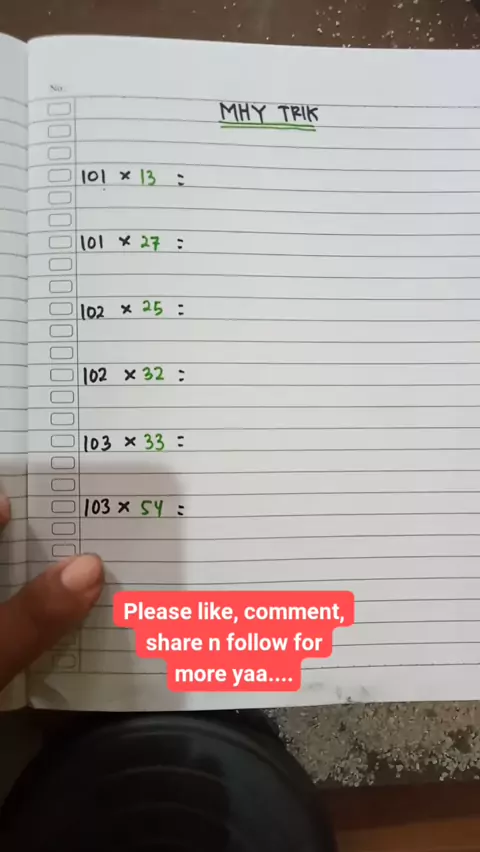 No.
MHY TRIK
101 × 13 =
101 × 27 =
102 × 25 =
102 × 32 =
103 × 33 =
103 × 54 =
Please like, comment,
share n follow for
more yaa....